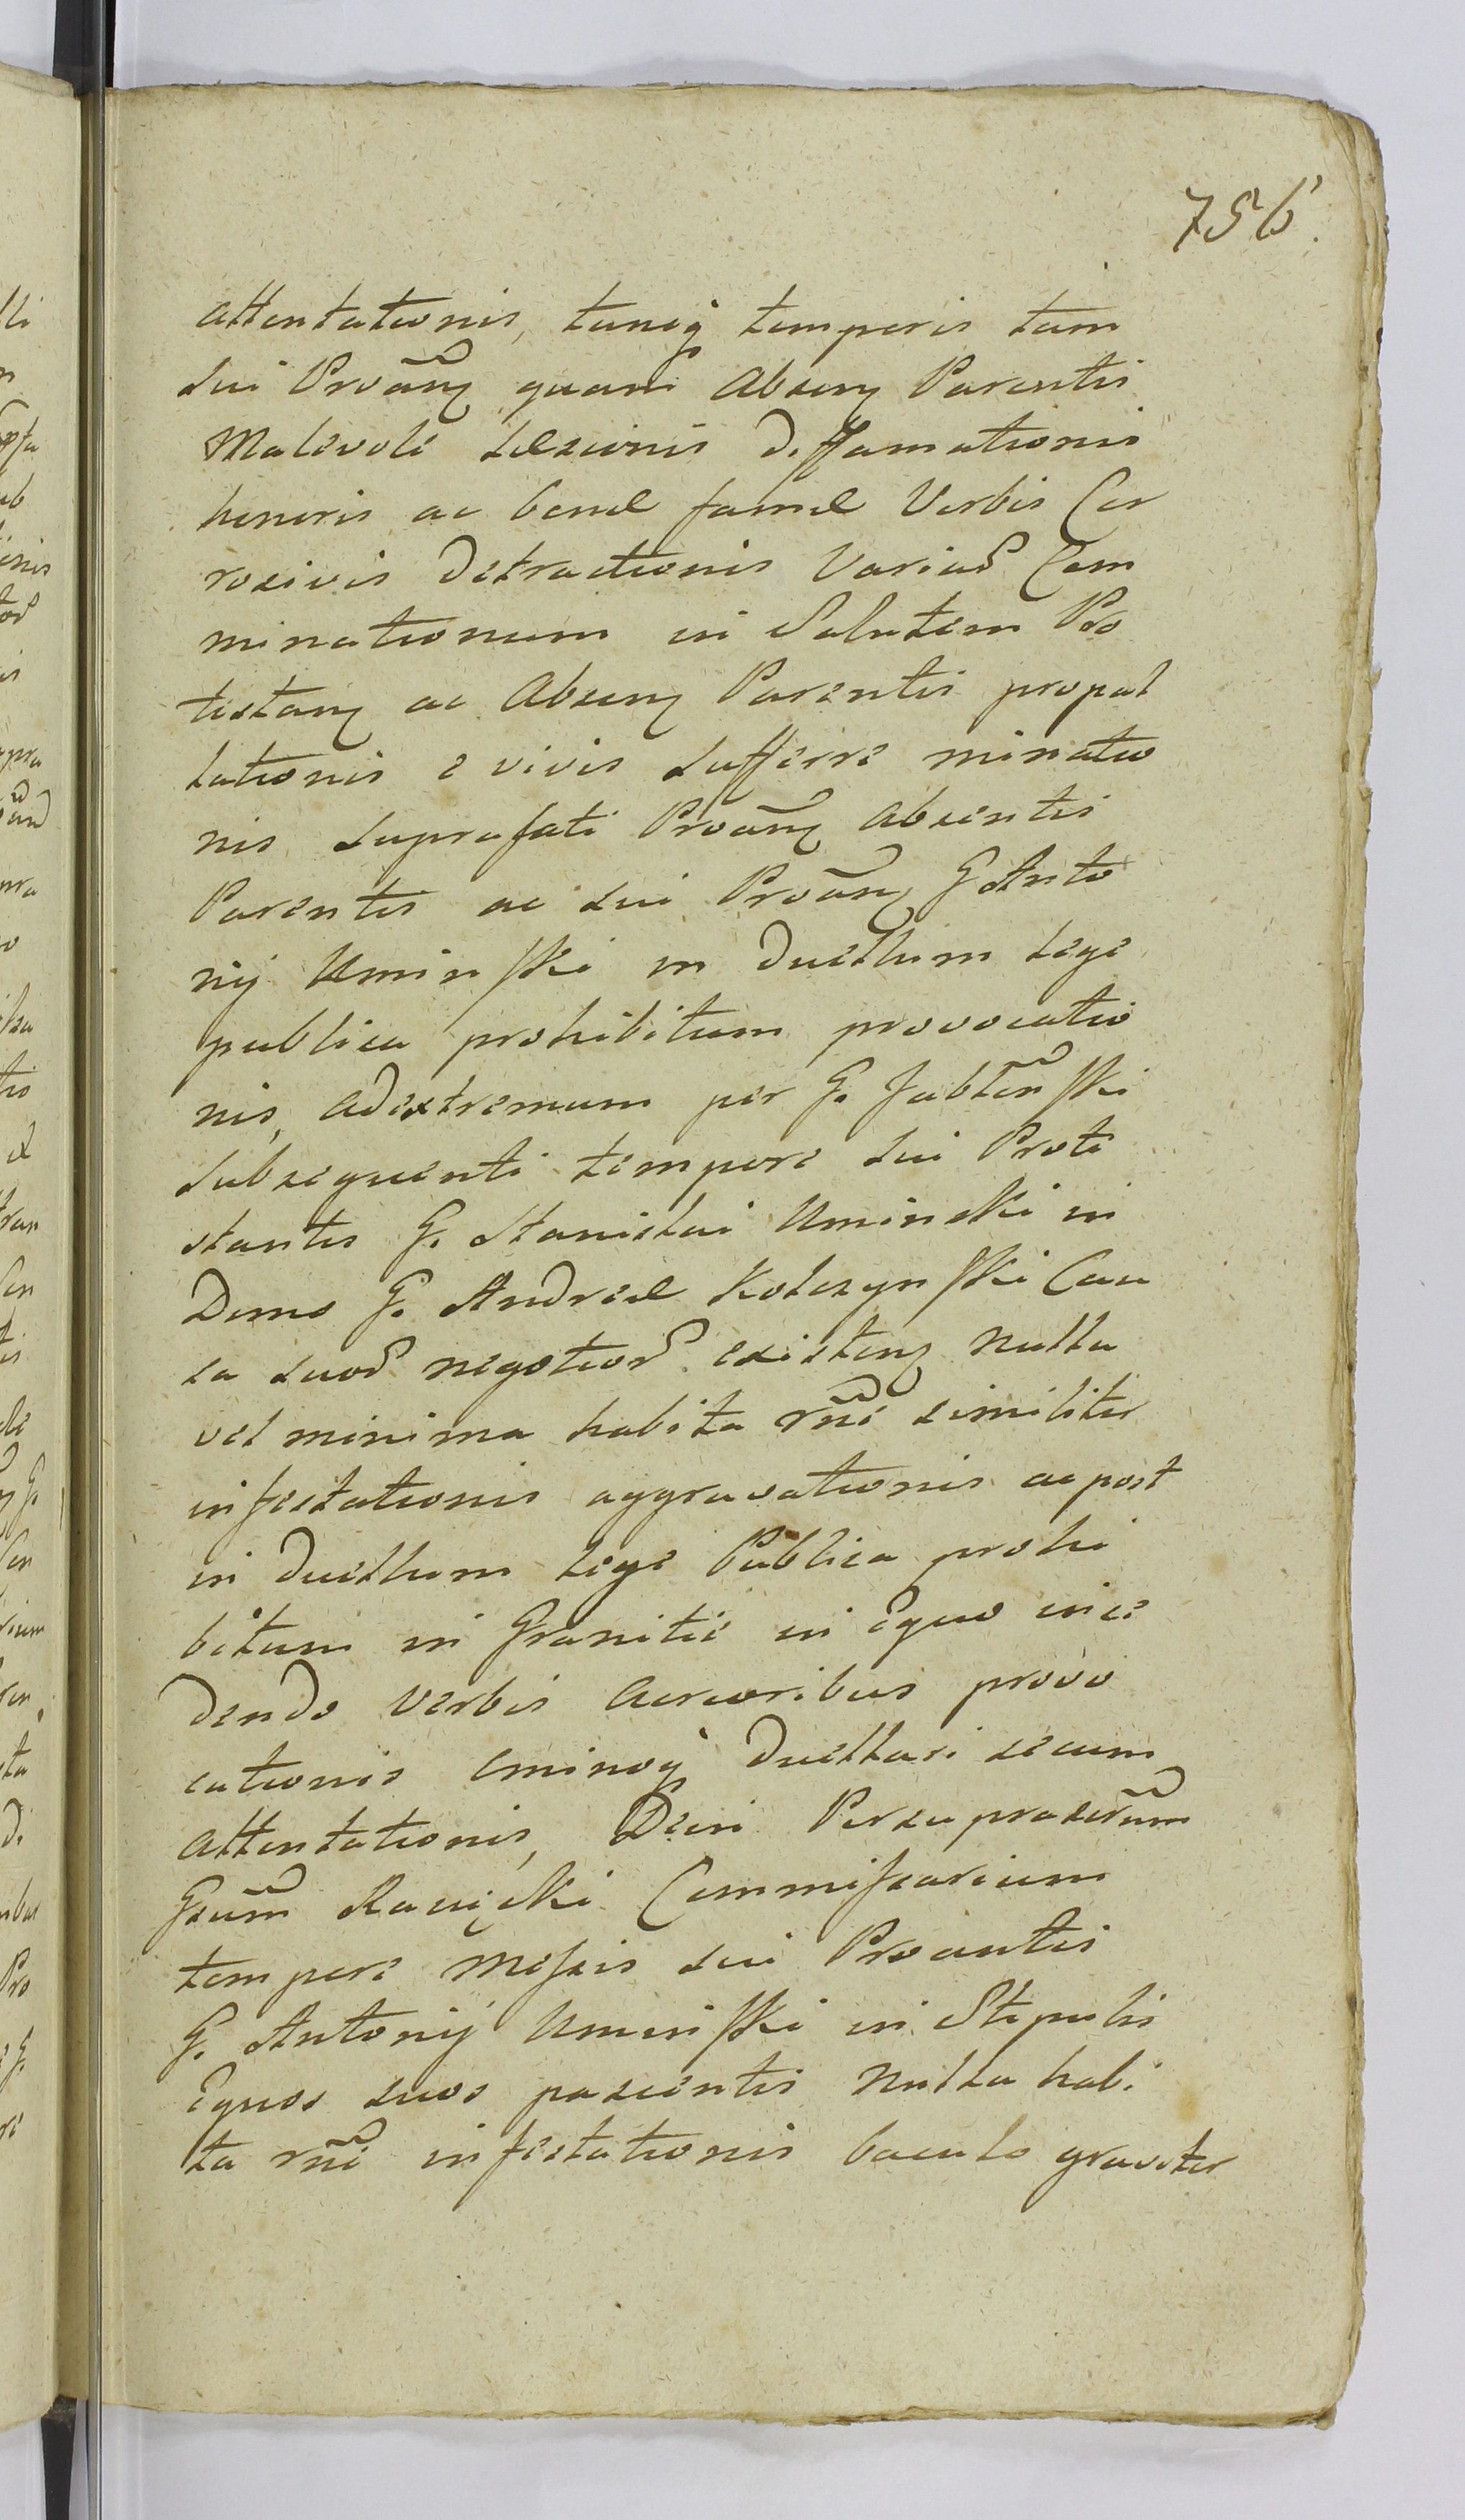 756.
attentationis, tuncq temporis tam
sui Proãñ quam Absen Parentis
Malevole Læsionis Diffamationis
honoris ac bonæ famæ Verbis Cor
rosivis Detractionis Variar Com
minationum in Salutem Pro
testan ac Absen Parentis propal
lationis e vivis sufferre minatio
nis suprafati Proãñ Absentis
Parentis ac sui Proãñ G Anto
nij Uminski in Duellum Lege
publica prohibitum provocatio
nis, ad extremum per G. Jabłoñski
subsequenti tempore sui Prote
stantis G. Stanislai Uminski in
Domo G. Andreæ Kolczynski Cau
sa suor negotior existen nulla
vel minima habita rñe similiter
infestationis aggravationis ac post
in Duellum Lege Publica prohi
bitum in Granitie in Equo ince
dendo Verbis acrioribus provo
cationis eminoq Duellari secum
attentationis, Dein Per supra
Gsum Commissarium
tempore Messis sui Proantis
G. Antonij Uminski in Stipulis
Equos suos pascentis nulla habi
ta rñe infestationis baculo graviter